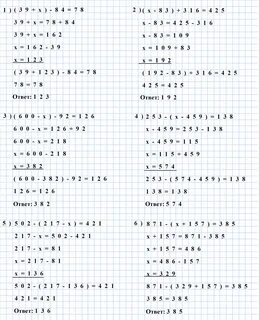 1) (39+x)-84=78
39+x=78+84
39+x=162
x=162-39
x=123
(39+123)-84=78
78=78
Ответ:123
2) (x-83)+316=425
x-83=425-316
x-83=109
x=109+83
x=192
(192-83)+316=425
425=425
Ответ:192
3) (600-x)-92=126
600-x=126+92
600-x=218
x=600-218
x=382
(600-382)-92=126
126=126
Ответ:382
4) 253-(x-459)=138
x-459=253-138
x-459=115
x=115+459
x=574
253-(574-459)=138
138=138
Ответ:574
5) 502-(217-x)=421
217-x=502-421
217-x=81
x=217-81
x=136
502-(217-136)=421
421=421
Ответ:136
6) 871-(x+157)=385
x+157=871-385
x+157=486
x=486-157
x=329
871-(329+157)=385
385=385
Ответ:329